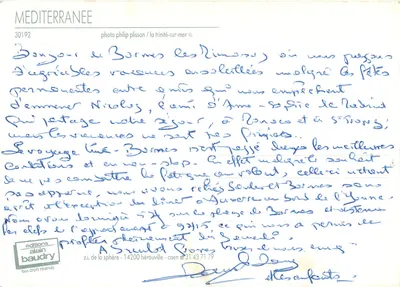 MEDITERRANEE
20192 photo philip plisson / la trinité-sur-mer
Bonjour de Bormes les Mimosas où nous passons
d'agréables vacances ensoleillées malgré les fêtes
permanentes entre amis qui nous empêchent
d'emmener Nicolas, l'ami d'Anne-Sophie de Madrid
qui partage notre séjour, à Monaco et à St Tropez;
mais les vacances ne sont pas finies..
Le voyage Bormes s'est passé dans les meilleures
conditions et en non-stop. En effet malgré le souhait
de ne pas connaître la fatigue au volant, celle-ci n'étant
pas apparue, nous avons relié et Bormes sans
arrêt à l'exception du dîner à Auxerre au Sud de l'Yonne.
Nous avons dormi sur la plage de Bormes et
les clefs de l'appartement à 9H15, ce qui nous a permis de
profiter pleinement du Samedi
A bientôt Gros bisous à vous cinq
les enfants
éditions
alain
baudry
tous droits réservés
z.i. de la sphère - 14200 hérouville - caen tél. 31 43 71 79